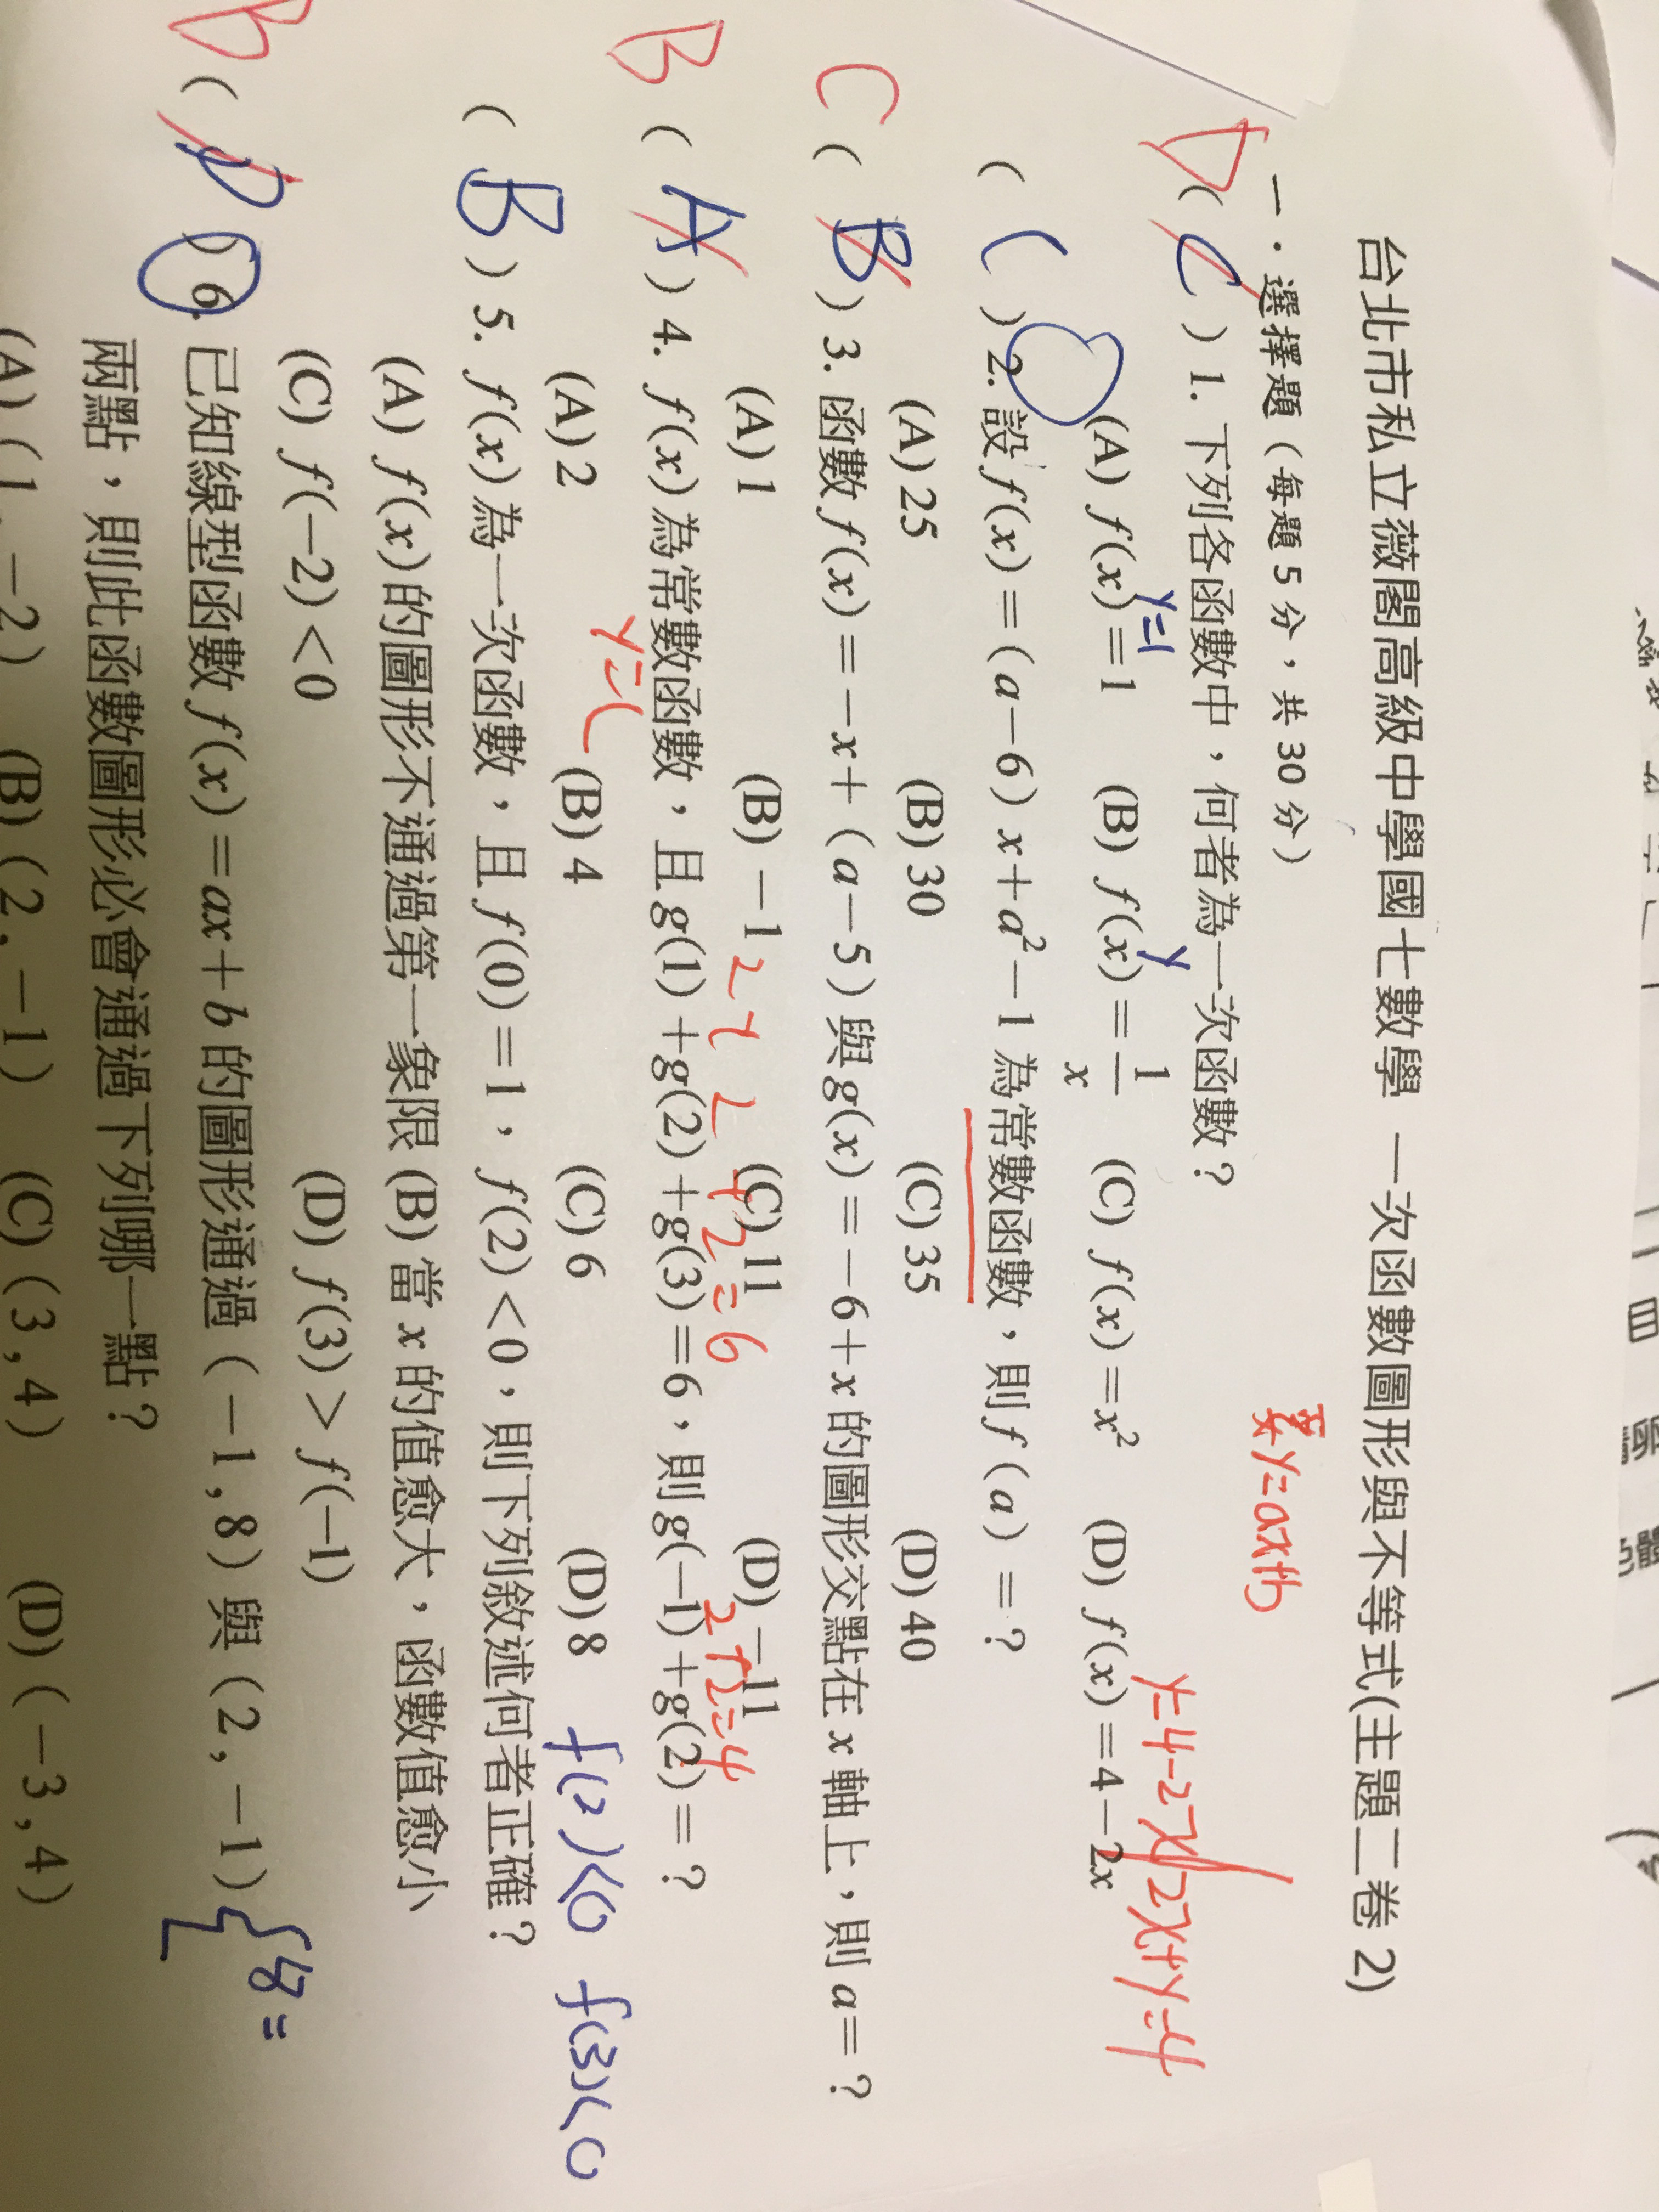 台北市私立薇閣高級中學國七數學 一次函數圖形與不等式(主題二卷 2)
一．選擇題（每題 5 分，共 30 分）
y=ax+b
D ( C ) 1. 下列各函數中，何者為一次函數？
y=1 y y=4-2x -2x+y=4
(A) f(x)=1 (B) f(x)=1/x (C) f(x)=x² (D) f(x)=4-2x
( C ) 2. 設 f(x)=(a-6)x+a²-1 為常數函數，則 f(a)=？
(A) 25 (B) 30 (C) 35 (D) 40
C ( B ) 3. 函數 f(x)=-x+(a-5) 與 g(x)=-6+x 的圖形交點在 x 軸上，則 a=？
(A) 1 (B) -1 (C) 11 (D) -11
2 + 2 +2=6 2+2=4
B ( A ) 4. f(x) 為常數函數，且 g(1)+g(2)+g(3)=6，則 g(-1)+g(2)=？
(A) 2 (B) 4 (C) 6 (D) 8
f(2)<0 f(3)<0
( B ) 5. f(x) 為一次函數，且 f(0)=1，f(2)<0，則下列敘述何者正確？
(A) f(x) 的圖形不通過第一象限 (B) 當 x 的值愈大，函數值愈小
(C) f(-2)<0 (D) f(3)>f(-1)
B ( D ) 6. 已知線型函數 f(x)=ax+b 的圖形通過（-1,8）與（2,-1） 8=
兩點，則此函數圖形必會通過下列哪一點？
(A)（1,-2） (B)（2,-1） (C)（3,4） (D)（-3,4）